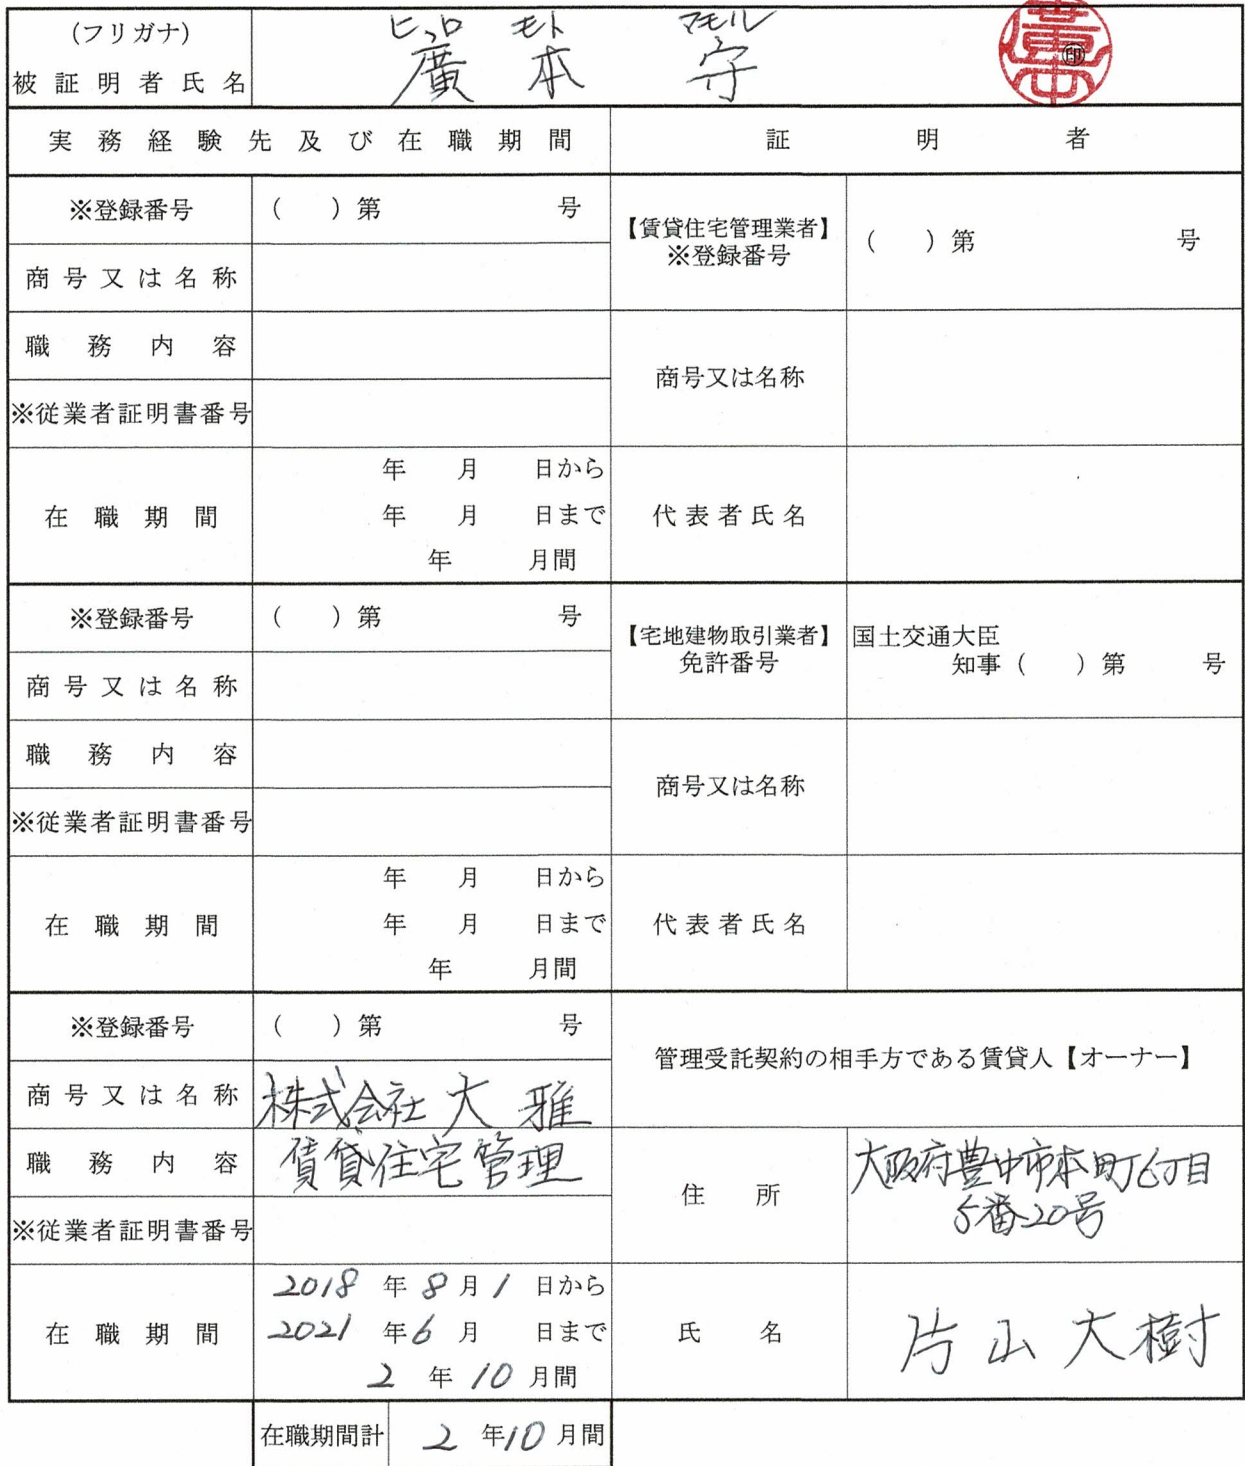 (フリガナ) ヒロ モト マモル
被証明者氏名 廣本 守 ㊞
実務経験先及び在職期間 証明者
※登録番号 ( ) 第 号
【賃貸住宅管理業者】
※登録番号 ( ) 第 号
商号又は名称
職務内容
商号又は名称
※従業者証明書番号
在職期間 年 月 日から
年 月 日まで
年 月間
代表者氏名
※登録番号 ( ) 第 号
【宅地建物取引業者】 国土交通大臣
免許番号 知事 ( ) 第 号
商号又は名称
職務内容
商号又は名称
※従業者証明書番号
在職期間 年 月 日から
年 月 日まで
年 月間
代表者氏名
※登録番号 ( ) 第 号
管理受託契約の相手方である賃貸人【オーナー】
商号又は名称 株式会社 大雅
職務内容 賃貸住宅管理
※従業者証明書番号
住所 大阪府豊中市本町6丁目
5番20号
在職期間 2018 年 8 月 1 日から
2021 年 6 月 日まで
2 年 10 月間
氏名 片山大樹
在職期間計 2 年 10 月間